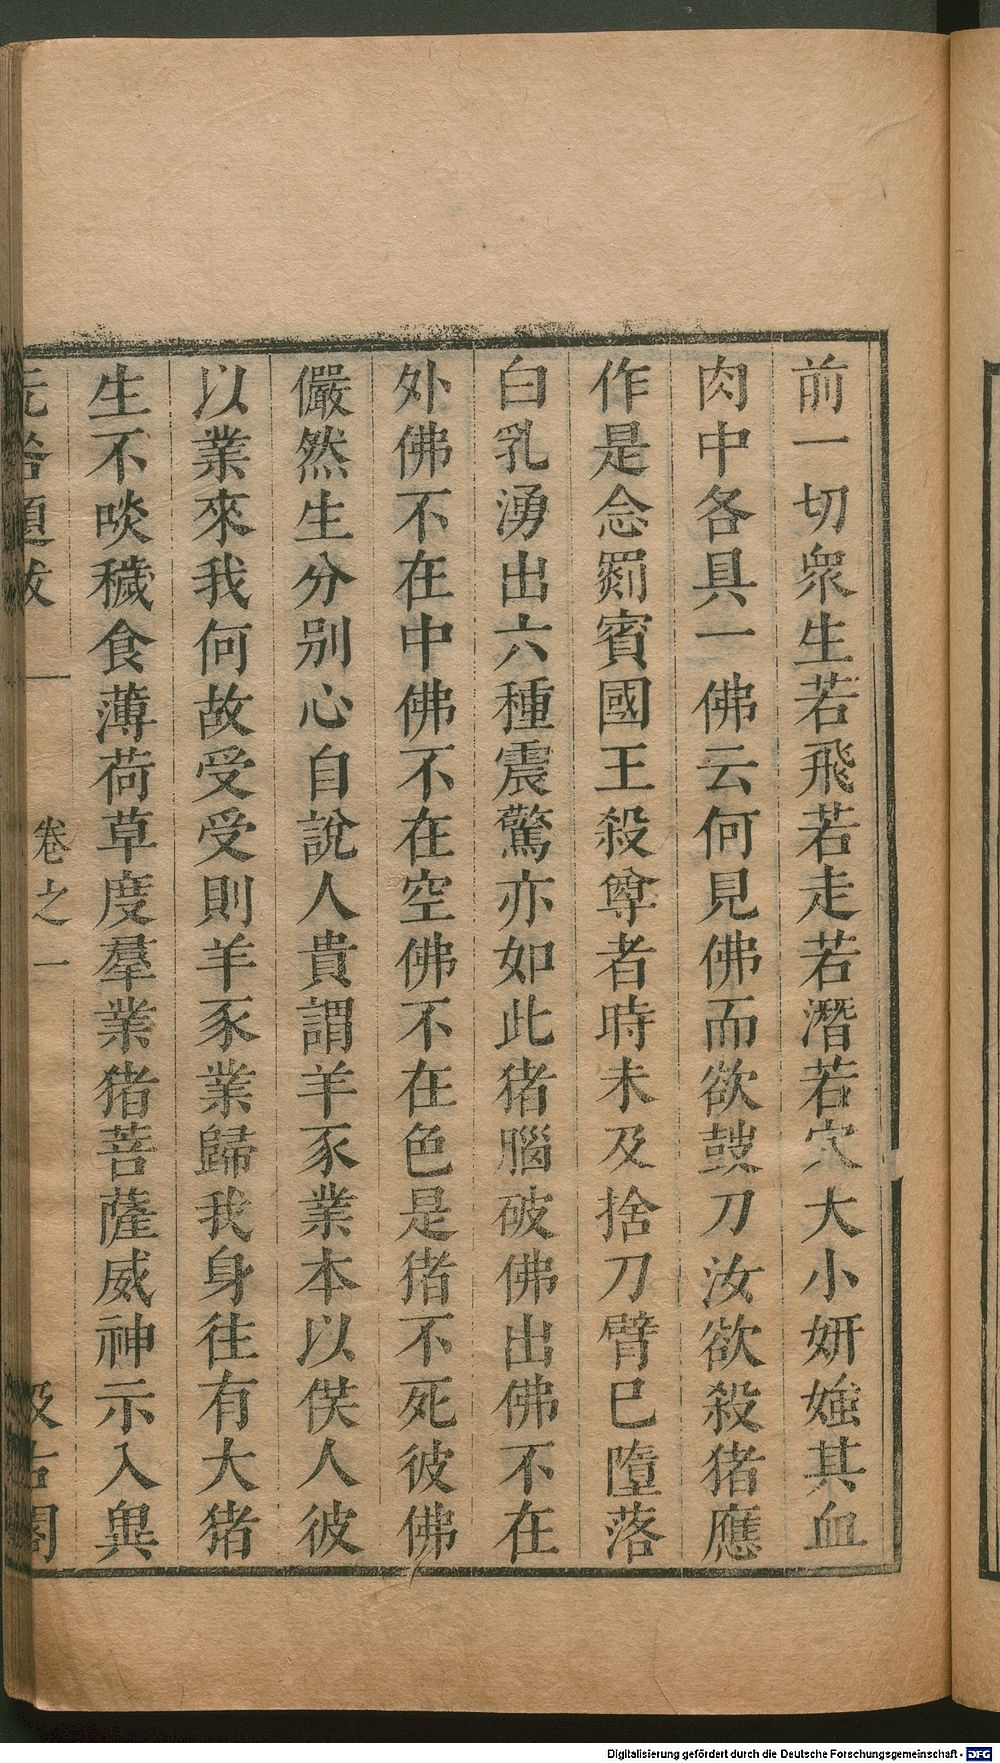 前一切衆生若飛若走若潛若穴大小妍媸其血
肉中各具一佛云何見佛而欲鼓刀汝欲殺猪應
作是念罽賓國王殺尊者時未及捨刀臂已墮落
白乳湧出六種震驚亦如此猪腦破佛出佛不在
外佛不在中佛不在空佛不在色是猪不死彼佛
儼然生分别心自說人貴謂羊豕業本以俟人彼
以業來我何故受受則羊豕業歸我身往有大猪
生不啖穢食薄荷草度羣業猪菩薩威神示入異
題跋 卷之一 汲古閣
Digitalisierung gefördert durch die Deutsche Forschungsgemeinschaft - DFG